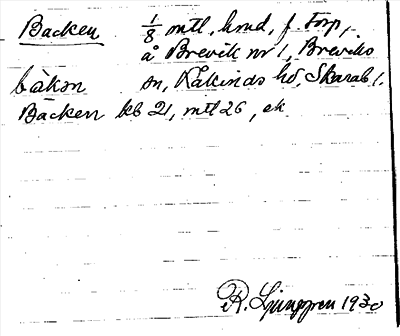 Backen 1/8 mtl, hmd, f. Torp,
å Brevik nr 1, Breviks
bàkɘn sn, Kåkinds hd, Skarab. l.
Bäcken kb 21, mtl 26, ek
R. Ljunggren 1930